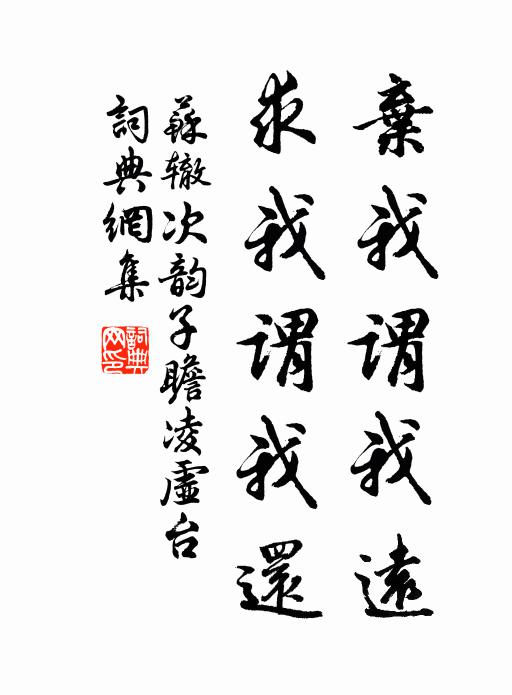 棄我謂我遠
求我謂我還
蘇辙次韵子瞻凌虛台
詞典網集
詞典網印